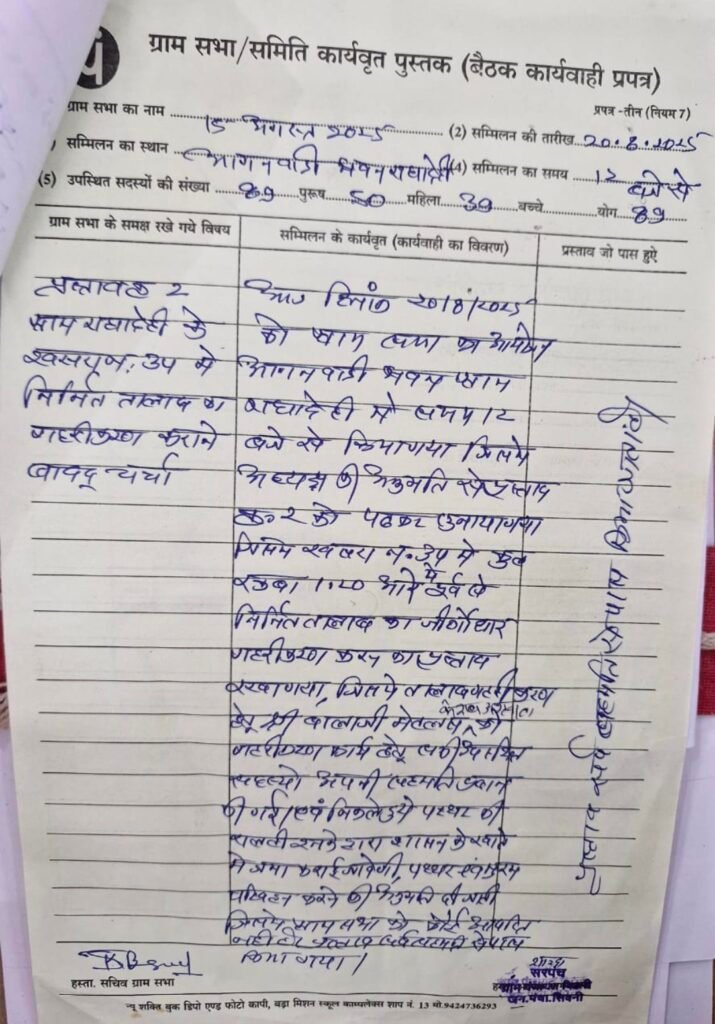 पं
ग्राम सभा/समिति कार्यवृत पुस्तक (बैठक कार्यवाही प्रपत्र)
प्रपत्र -तीन (नियम 7)
ग्राम सभा का नाम 15 अगस्त 2025 (2) सम्मिलन की तारीख 20.8.2025
सम्मिलन का स्थान आगनवाडी भवन राघादेही (4) सम्मिलन का समय 12 बजे से
(5) उपस्थित सदस्यों की संख्या 89 पुरूष 50 महिला 39 बच्चे योग 89
ग्राम सभा के समक्ष रखे गये विषय
सम्मिलन के कार्यवृत (कार्यवाही का विवरण)
प्रस्ताव जो पास हुऐ
प्रस्ताव क्र 2
ग्राम राघादेही के
खसरा न. 34 मे
निर्मित तालाब का
गहरीकरण कराने
बावद् चर्चा
आज दिनांक 20/8/2025
को ग्राम सभा का आयोजन
आगनवाडी भवन ग्राम
राघादेही मे समय 12
बजे से किया गया जिसमे
अध्यक्ष की अनुमति से प्रस्ताव
क्र 2 को पढकर सुनाया गया
जिसमे खसरा न. 34 मे कुल
रकबा 1.20 आरे मे पूर्व से
निर्मित तालाब का जीर्णोधार
गहरीकरण करने का प्रस्ताव
रखा गया, जिसमे तालाब गहरीकरण
हेतु श्री बालाजी मेटल्स को
गहरीकरण कार्य हेतु सभी उपस्थित
सदस्यो अपनी सहमति प्रदान
की गई। एवं निकले हुये पत्थर की
रायल्टी उनके द्वारा शासन के खाते
मे जमा कराई जावेगी, पत्थर एवं मुरम
परिवहन करने की अनुमति दी जाती
जिसमे ग्राम सभा को कोई आपत्ति
नही है प्रस्ताव सर्व सहमति से पास
किया गया।
प्रस्ताव सर्व सहमति से पास किया जाता है
हस्ता. सचिव ग्राम सभा
सरपंच
जन.पंचा. सिवनी
न्यू शक्ति बुक डिपो एण्ड फोटो कापी, बड़ा मिशन स्कूल काम्पलेक्स शाप नं. 13 मो.9424736293